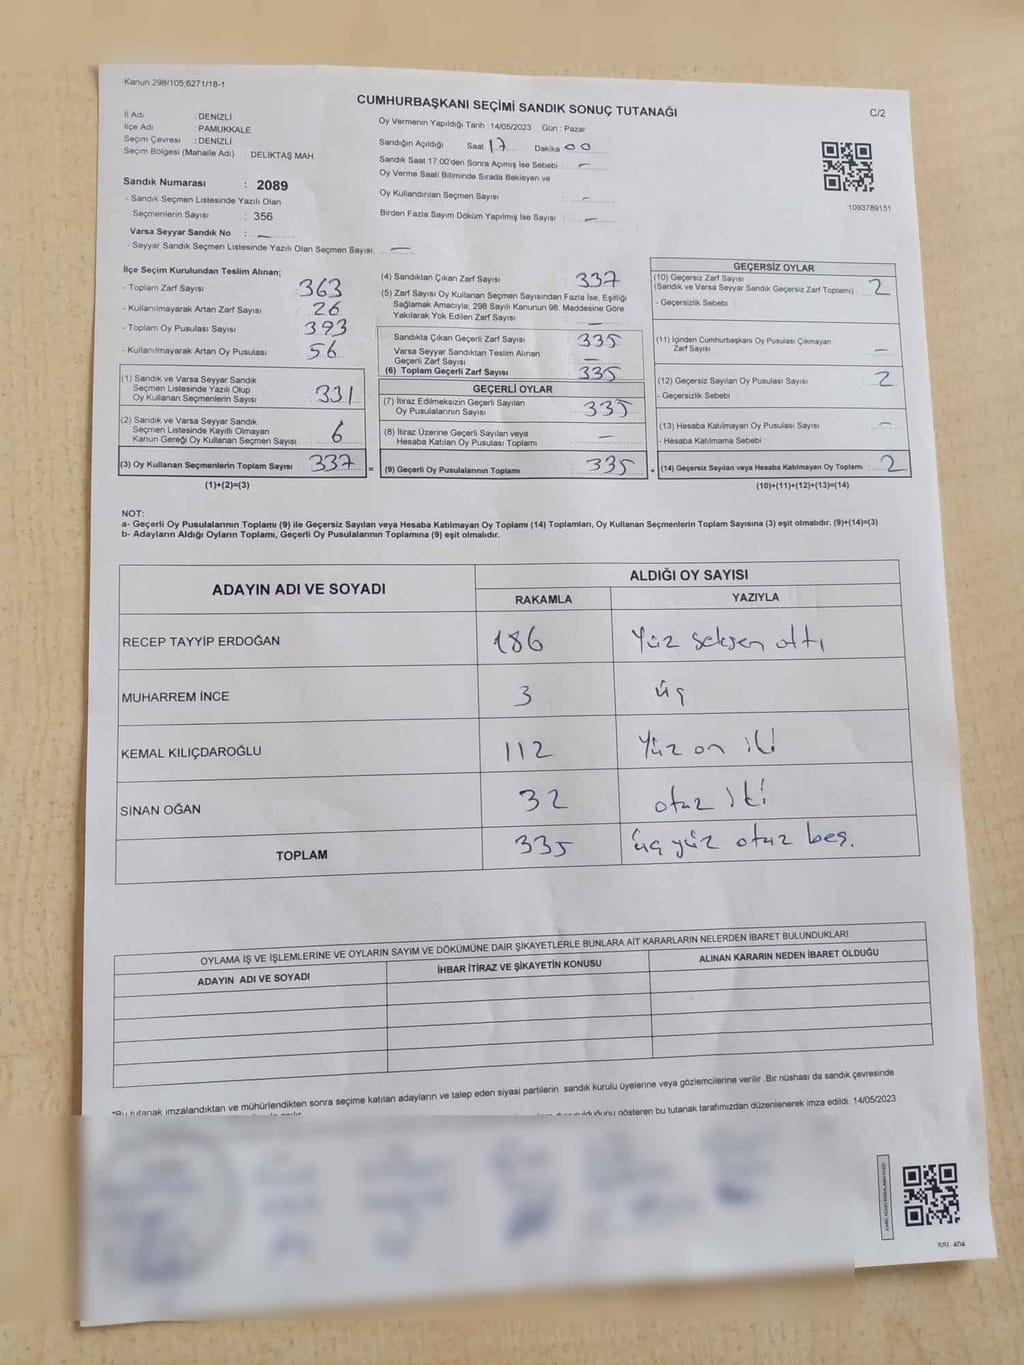 Kanun 298/105;6271/18-1
CUMHURBAŞKANI SEÇİMİ SANDIK SONUÇ TUTANAĞI
C/2
İl Adı : DENİZLİ
İlçe Adı : PAMUKKALE
Seçim Çevresi : DENİZLİ
Seçim Bölgesi (Mahalle Adı) : DELİKTAŞ MAH.
Sandık Numarası : 2089
- Sandık Seçmen Listesinde Yazılı Olan
Seçmenlerin Sayısı : 356
Varsa Seyyar Sandık No : —
- Seyyar Sandık Seçmen Listesinde Yazılı Olan Seçmen Sayısı: —
Oy Vermenin Yapıldığı Tarih : 14/05/2023 Gün : Pazar
Sandığın Açıldığı Saat 17 Dakika 00
Sandık Saat 17:00'den Sonra Açımış İse Sebebi : —
Oy Verme Saati Bitiminde Sırada Bekleyen ve
Oy Kullandırılan Seçmen Sayısı : —
Birden Fazla Sayım Döküm Yapılmış İse Sayısı : —
1093789151
İlçe Seçim Kurulundan Teslim Alınan;
- Toplam Zarf Sayısı : 363
- Kullanılmayarak Artan Zarf Sayısı : 26
- Toplam Oy Pusulası Sayısı : 393
- Kullanılmayarak Artan Oy Pusulası : 56
(1) Sandık ve Varsa Seyyar Sandık
Seçmen Listesinde Yazılı Olup
Oy Kullanan Seçmenlerin Sayısı : 331
(2) Sandık ve Varsa Seyyar Sandık
Seçmen Listesinde Kayıtlı Olmayan
Kanun Gereği Oy Kullanan Seçmen Sayısı : 6
(3) Oy Kullanan Seçmenlerin Toplam Sayısı : 337
(1)+(2)=(3)
(4) Sandıktan Çıkan Zarf Sayısı : 337
(5) Zarf Sayısı Oy Kullanan Seçmen Sayısından Fazla İse, Eşitliği
Sağlamak Amacıyla; 298 Sayılı Kanunun 98. Maddesine Göre
Yakılarak Yok Edilen Zarf Sayısı : —
Sandıkta Çıkan Geçerli Zarf Sayısı : 335
Varsa Seyyar Sandıktan Teslim Alınan
Geçerli Zarf Sayısı : —
(6) Toplam Geçerli Zarf Sayısı : 335
GEÇERLİ OYLAR
(7) İtiraz Edilmeksizin Geçerli Sayılan
Oy Pusulalarının Sayısı : 335
(8) İtiraz Üzerine Geçerli Sayılan veya
Hesaba Katılan Oy Pusulası Toplamı : —
= (9) Geçerli Oy Pusulalarının Toplamı : 335 +
GEÇERSİZ OYLAR
(10) Geçersiz Zarf Sayısı
(Sandık ve Varsa Seyyar Sandık Geçersiz Zarf Toplamı) : 2
- Geçersizlik Sebebi :
(11) İçinden Cumhurbaşkanı Oy Pusulası Çıkmayan
Zarf Sayısı : —
(12) Geçersiz Sayılan Oy Pusulası Sayısı : 2
- Geçersizlik Sebebi :
(13) Hesaba Katılmayan Oy Pusulası Sayısı : —
- Hesaba Katılmama Sebebi :
(14) Geçersiz Sayılan veya Hesaba Katılmayan Oy Toplamı : 2
(10)+(11)+(12)+(13)=(14)
NOT:
a- Geçerli Oy Pusulalarının Toplamı (9) ile Geçersiz Sayılan veya Hesaba Katılmayan Oy Toplamı (14) Toplamları, Oy Kullanan Seçmenlerin Toplam Sayısına (3) eşit olmalıdır. (9)+(14)=(3)
b- Adayların Aldığı Oyların Toplamı, Geçerli Oy Pusulalarının Toplamına (9) eşit olmalıdır.
ADAYIN ADI VE SOYADI
ALDIĞI OY SAYISI
RAKAMLA YAZIYLA
RECEP TAYYİP ERDOĞAN 186 Yüz seksen altı
MUHARREM İNCE 3 üç
KEMAL KILIÇDAROĞLU 112 Yüz on iki
SİNAN OĞAN 32 otuz iki
TOPLAM 335 üç yüz otuz beş.
OYLAMA İŞ VE İŞLEMLERİNE VE OYLARIN SAYIM VE DÖKÜMÜNE DAİR ŞİKAYETLERLE BUNLARA AİT KARARLARIN NELERDEN İBARET BULUNDUKLARI
ADAYIN ADI VE SOYADI İHBAR İTİRAZ VE ŞİKAYETİN KONUSU ALINAN KARARIN NEDEN İBARET OLDUĞU
*Bu tutanak imzalandıktan ve mühürlendikten sonra seçime katılan adayların ve talep eden siyasi partilerin sandık kurulu üyelerine veya gözlemcilerine verilir .Bir nüshası da sandık çevresinde
gösteren bu tutanak tarafımızdan düzenlenerek imza edildi. 14/05/2023